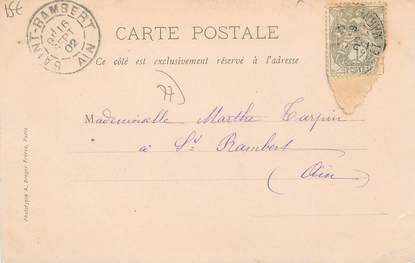 15€
SAINT-RAMBERT
16
SEPT
02
AIN
CARTE POSTALE
Ce côté est exclusivement réservé à l'adresse
77
Mademoiselle Marthe Tarpin
à St Rambert
(Ain)
Phototypie A. Berger Frères, Paris